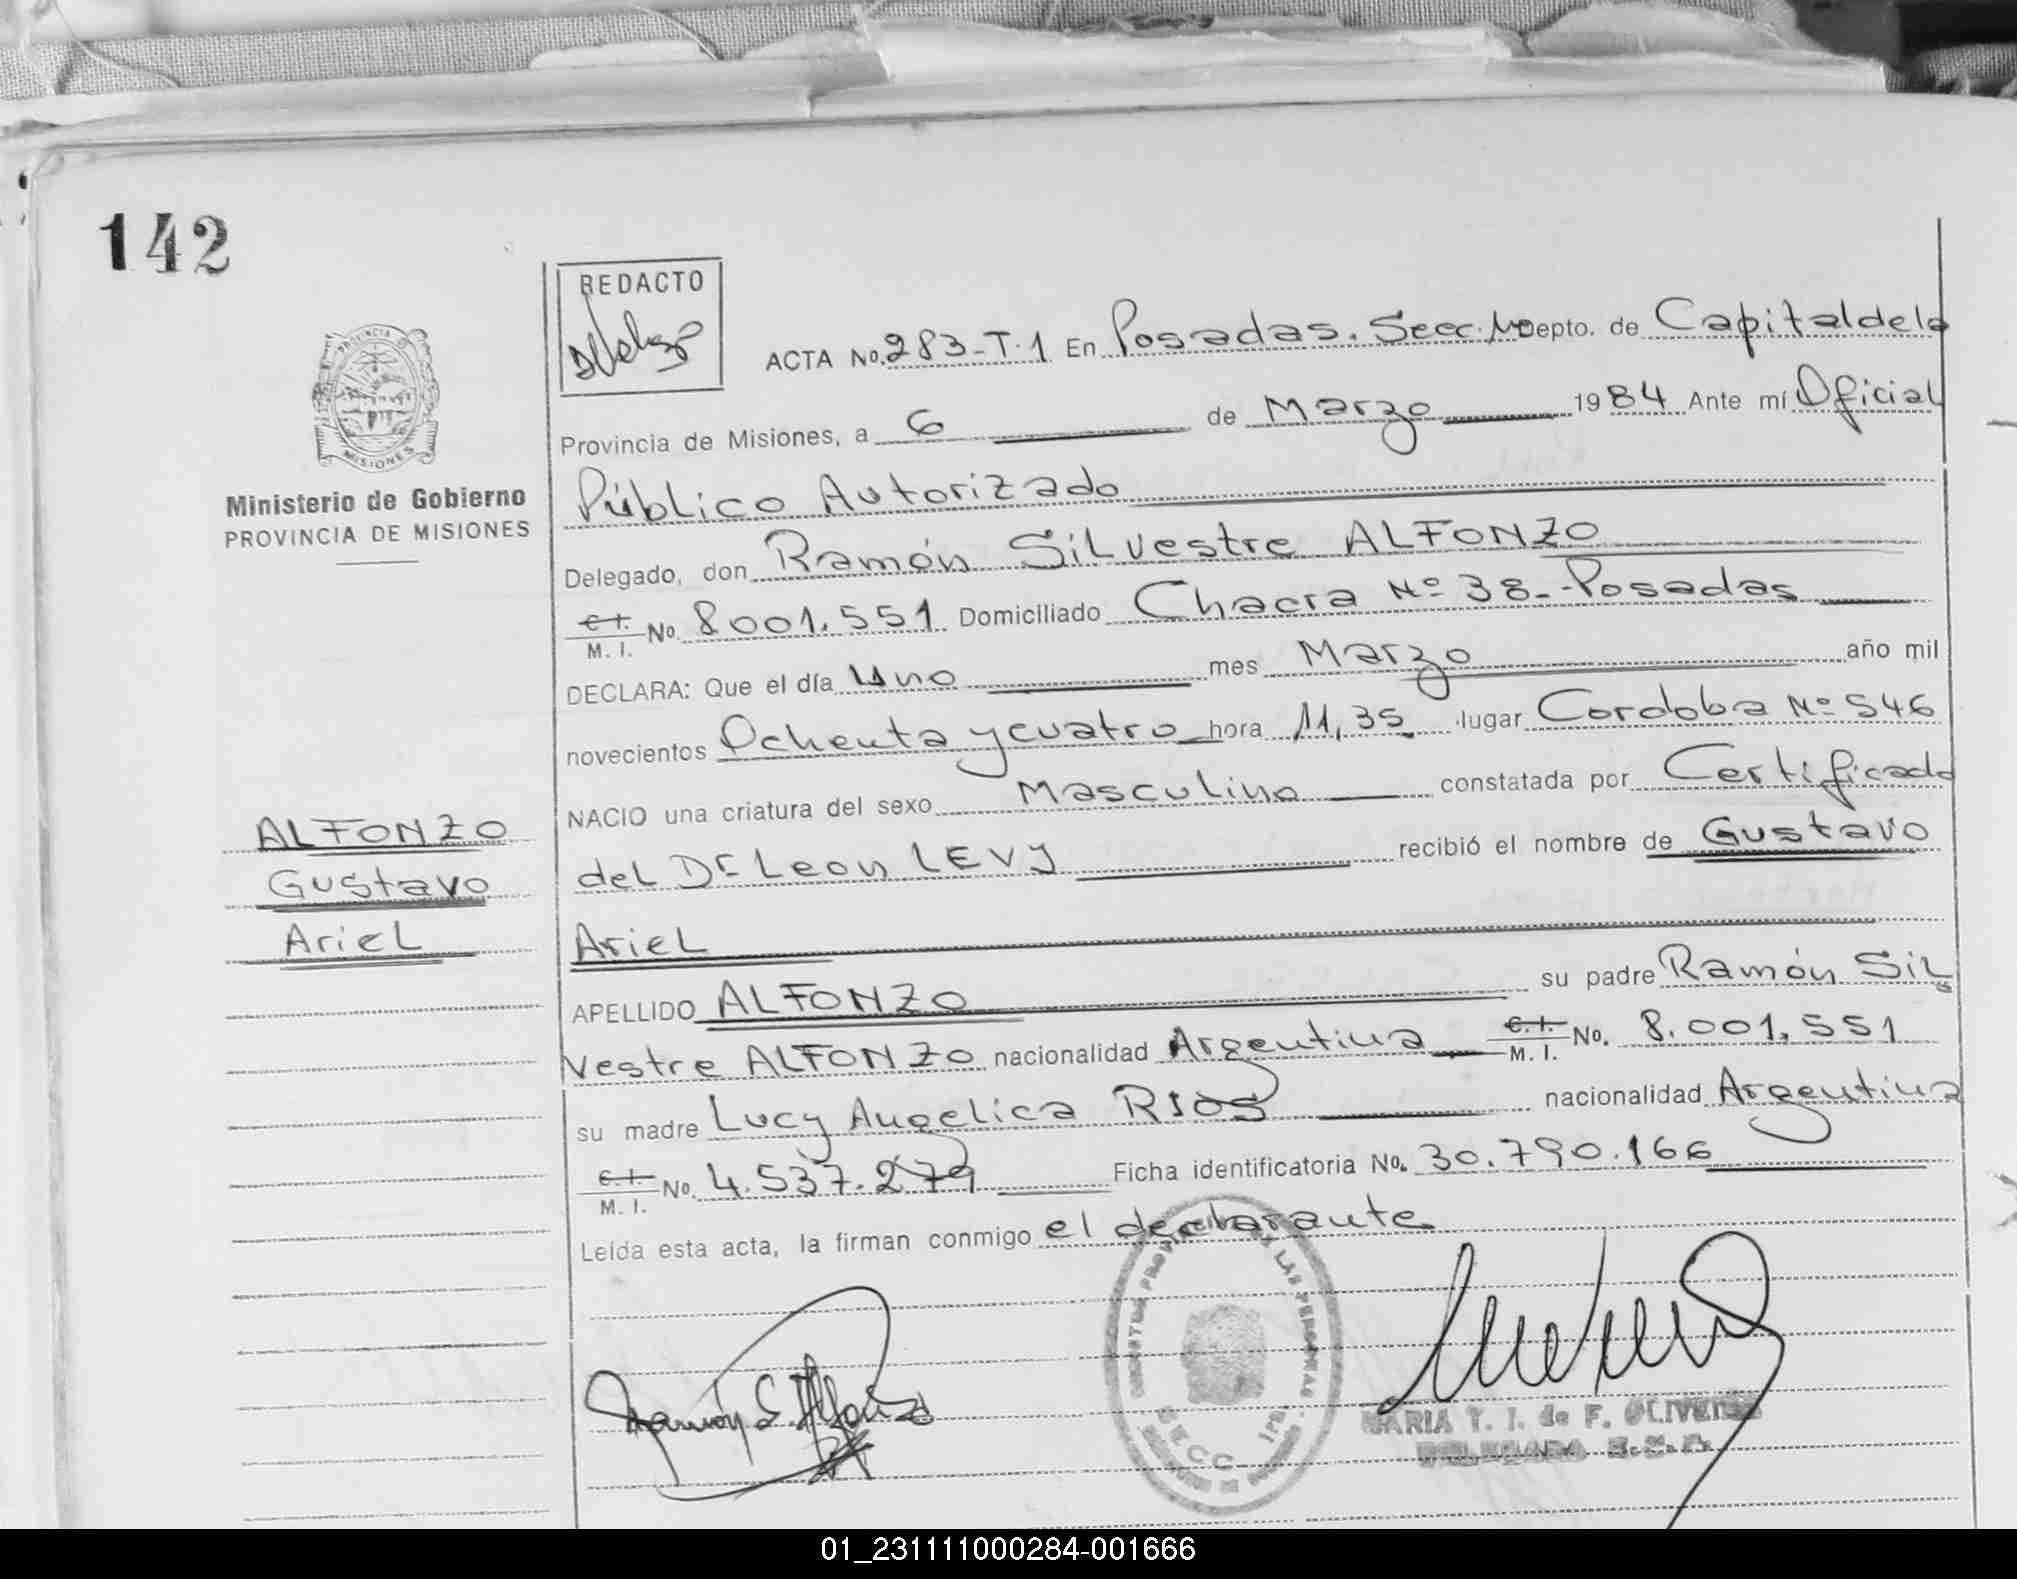 142
REDACTO
PROVINCIA DE
MISIONES
Ministerio de Gobierno
PROVINCIA DE MISIONES
ACTA No. 283-T-1 En Posadas. Secc. Depto. de Capital de la
Provincia de Misiones, a 6 de Marzo 1984 Ante mí Oficial
Público Autorizado
Delegado, don Ramón Silvestre ALFONZO
C.I. M. I. No. 8001.551 Domiciliado Chacra Nº 38.-Posadas
DECLARA: Que el día Uno mes Marzo año mil
novecientos Ochenta y cuatro hora 11,35 lugar Cordoba Nº 546
NACIO una criatura del sexo Masculino constatada por Certificado
del Dr Leon LEVY recibió el nombre de Gustavo
Ariel
ALFONZO
Gustavo
Ariel
APELLIDO ALFONZO su padre Ramón Sil
vestre ALFONZO nacionalidad Argentina C.I. M. I. No. 8.001,551
su madre Lucy Angelica RIOS nacionalidad Argentina
C.I. M. I. No. 4.537.279 Ficha identificatoria No. 30.790.166
Leída esta acta, la firman conmigo el declarante
Ramón S. Alfonzo
LAS PERSONAS
SECC. 1ra.
MARIA T. I. de F. OLIVEIRA
01_231111000284-001666